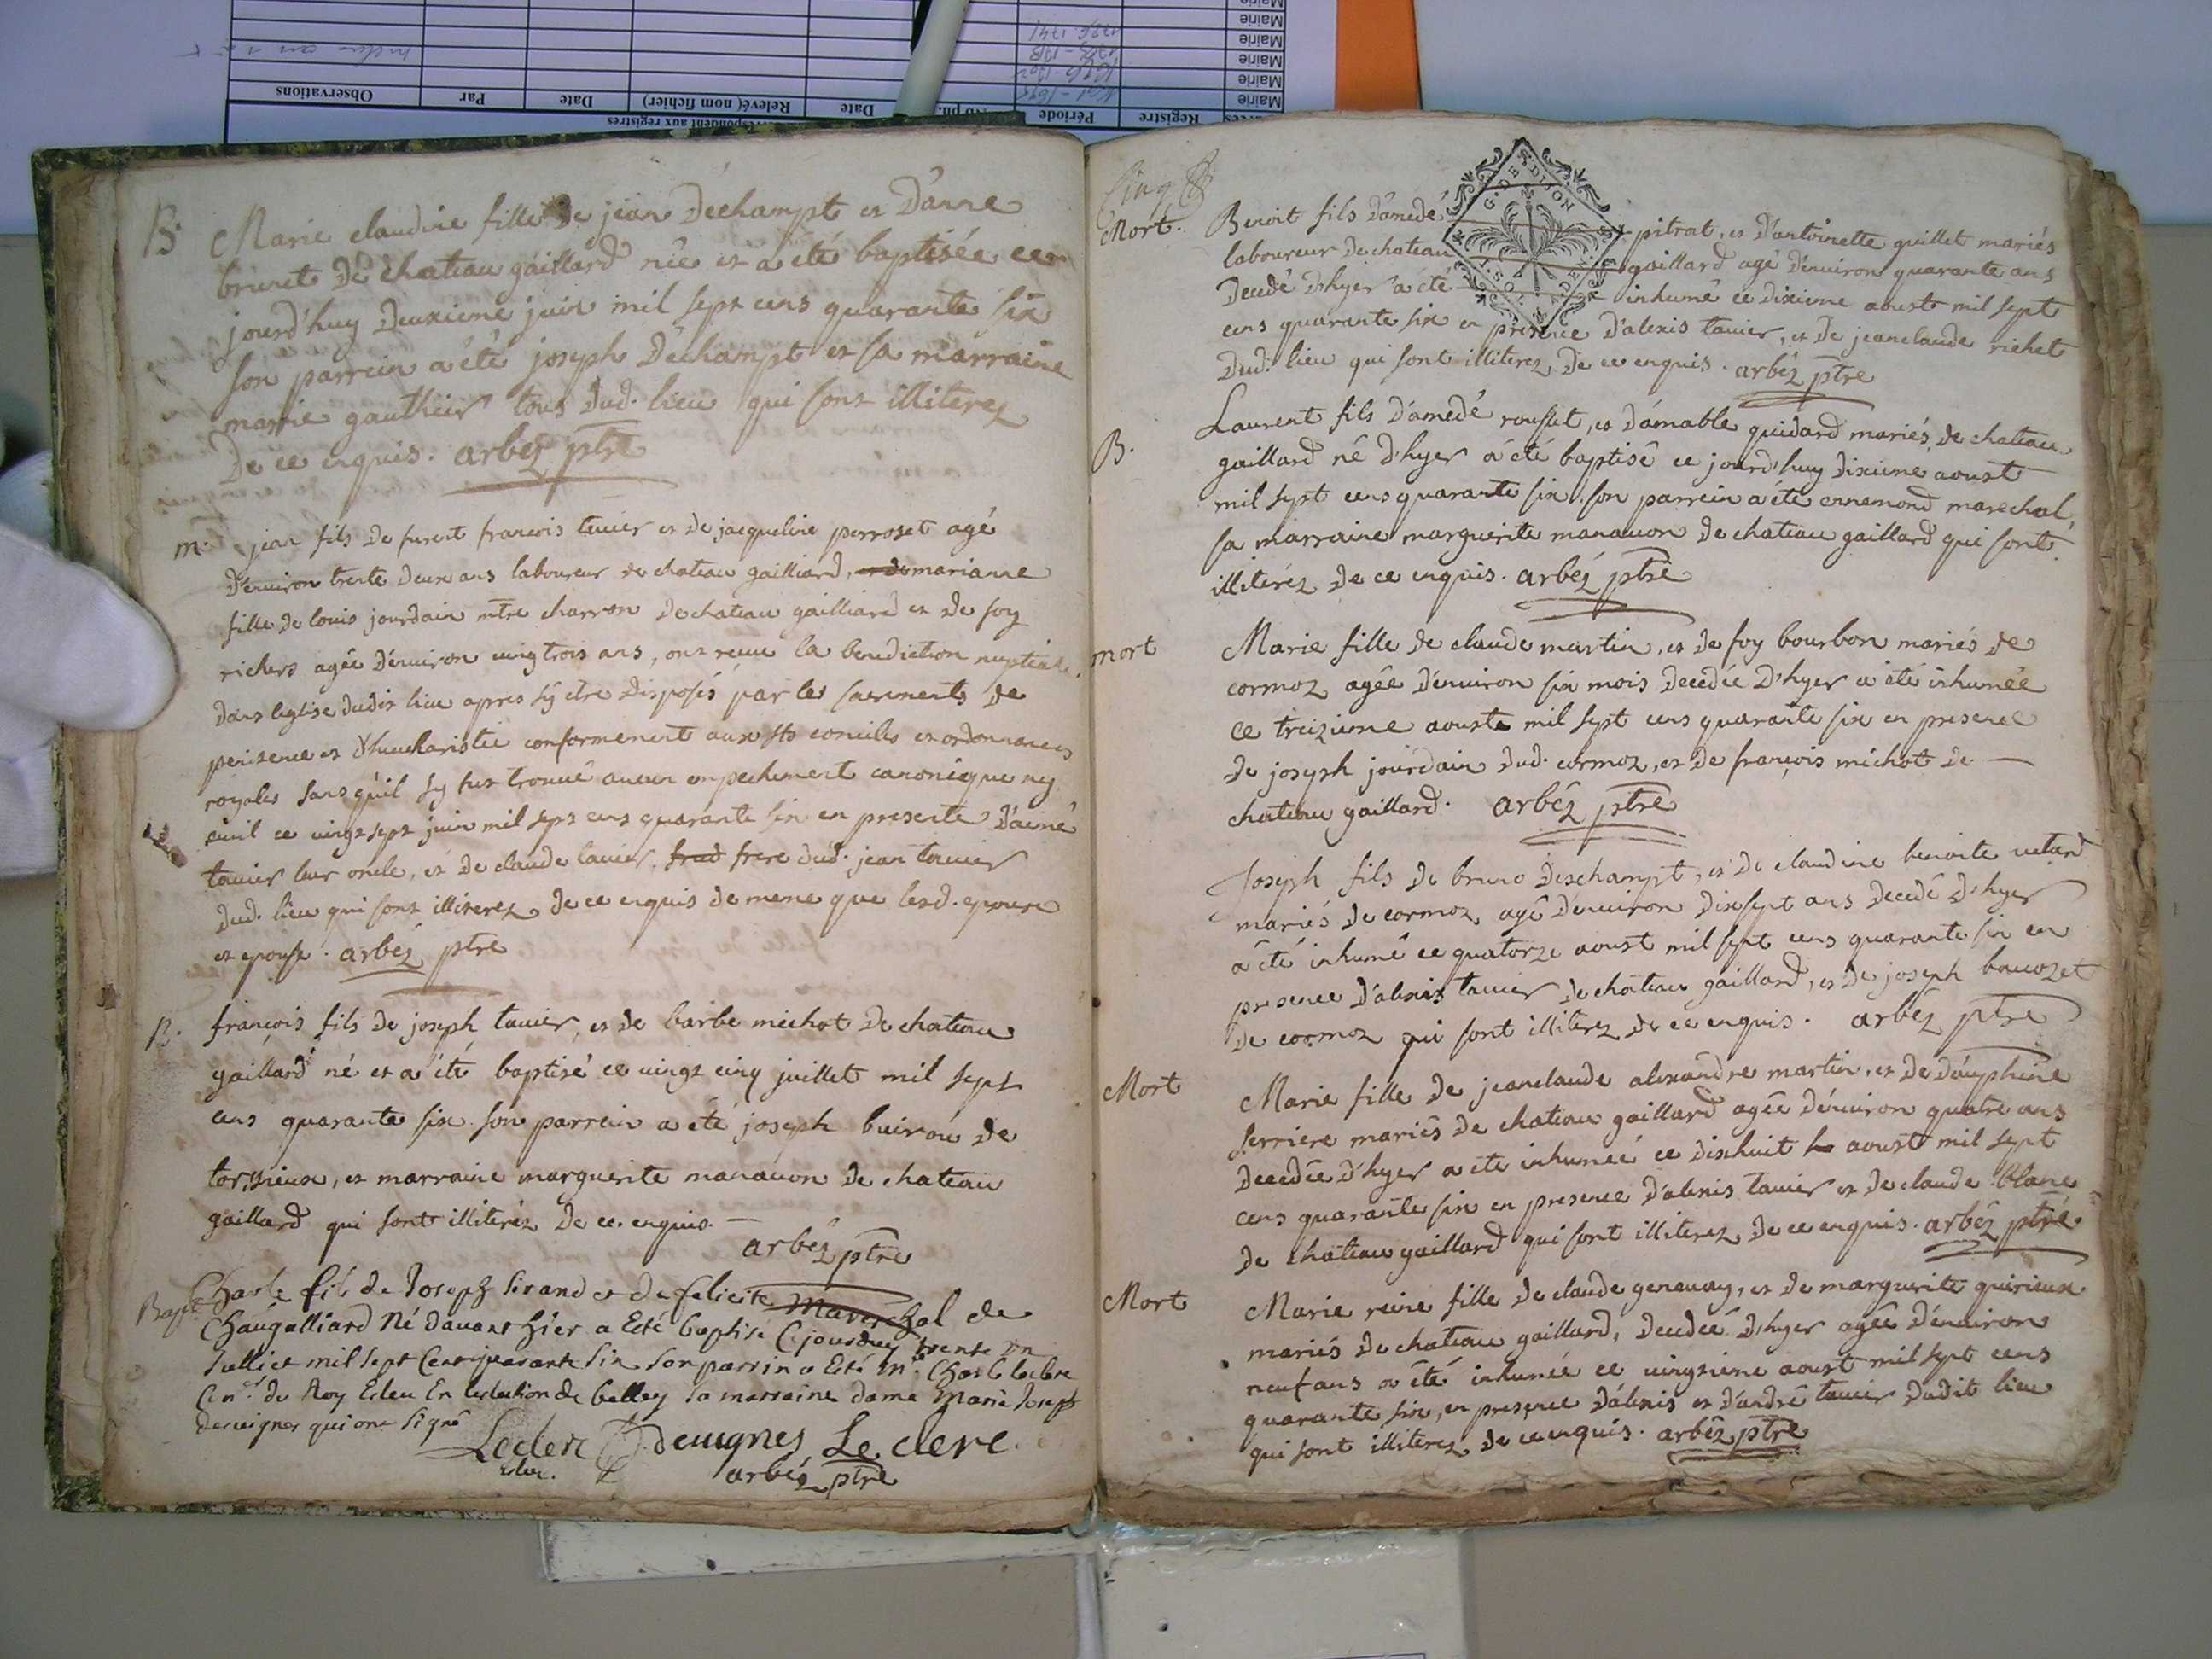 Observations
Par
Date
Relevé( nom fichier)
Date
Période
Registre
Mairie
Mairie
Mairie
Mairie
Mairie
respondent aux registres
B. Marie claudine fille de jean Déchampt et D'anne
brunet de chateau gaillard née et a été baptisée ce
jourd'huy Deuxieme juin mil sept cens quarante six
son parrein a été joseph Déchampt et sa marraine
marie gauthier tous dud. lieu qui sont illiterez
De ce enquis. arbéz ptre
m. jean fils de furent francois tavier et de jacqueline perroset agé
d'environ trente deux ans laboureur de chateau gailliard, marianne
fille de louis jourdain mtre charron de chateau gailliard et de foy
richerd agée d'environ vingtrois ans, ont recue la benediction nuptiale
dans leglise dudit lieu apres sÿ etre disposés par les sacrements de
penitence et d'heucharistie conformement aux sts conciles et ordonnances
royales sans qu'il sy fut trouvé aucun empechement canonique ny
civil ce vingt sept juin mil sept cens quarante six en presente d'aimé
tavier leur oncle, et de claude tavier, frere dud. jean tavier
dud. lieu qui sont illiterez de ce enquis de meme que lesd. epoux
et epouse. arbéz ptre
B. françois fils de joseph tavier, et de barbe michot de chateau
gaillard né et a été baptisé ce vingt cinq juillet mil sept
cens quarante six. son parrein a été joseph buiron de
torssieux, et marraine marguerite manavon de chateau
gaillard qui sont illiteréz de ce enquis.
arbéz ptre
Bapt. Charle fils de Joseph Sirand et de felicite Mareschal de
Chaugalliard Né davant hier a Esté baptisé Cejourduy trente un
Julliet mil sept Cent quarante Six Son parrin a Esté mr. Charle leclerc
Coner du Roy Esleu En leslection de belley sa marraine dame Marie Joseph
deveignes qui ont signé
Leclerc Deveugnes Le clerc.
Esleu. arbéz ptre
Cinq
Mort. Benoit fils D'amedé pitrat, et D'antoinette quillet mariés
laboureur de chateau gaillard agé d'environ quarante ans
Decedé D'hyer a été inhumé ce Dixieme aoust mil sept
cens quarante six en presence D'alexis tavier, et de jeanclaude richet
Dud. lieu qui sont illiterez De ce enquis. arbéz ptre
B. Laurent fils D'amedé rousset, et D'amable guidard mariés de chateau
gaillard né D'hyer a été baptisé ce jourd'huy dixieme aoust
mil sept cens quarante six. son parrein a été ennemond marechal,
sa marraine marguerite manavon de chateau gaillard qui sont
illiteréz de ce enquis. arbéz ptre
mort Marie fille de claude martin, et de foy bourbon mariés de
cormoz agée d'environ six mois decedée D'hyer a été inhumée
ce treizieme aoust mil sept cens quarante six en presence
de joseph jourdain dud. cormoz, et de françois michot de
chateau gaillard. arbéz ptre
Joseph fils de bruno Deschampt, et de claudine benoite
mariés de cormoz agé d'environ dixsept ans decedé D'hyer
a été inhumé ce quatorze aoust mil sept cens quarante six en
presence D'alexis tavier de chateau gaillard, et de joseph
de cormoz qui sont illiterez de ce enquis. arbéz ptre
Mort Marie fille de jeanclaude alexandre martin, et de dauphine
ferriere mariés de chateau gaillard agée d'environ quatre ans
decedée D'hyer a été inhumée ce dixhuit aoust mil sept
cens quarante six en presence d'alexis tavier et de claude blanc
de chateau gaillard qui sont illiterez de ce enquis. arbéz ptre
Mort Marie reine fille de claude genevay, et de marguerite quirieux
mariés de chateau gaillard, decedée D'hyer agée d'environ
neuf ans a été inhumée ce vingtieme aoust mil sept cens
quarante six, en presence d'alexis et d'andré tavier dudit lieu
qui sont illiterez de ce enquis. arbéz ptre